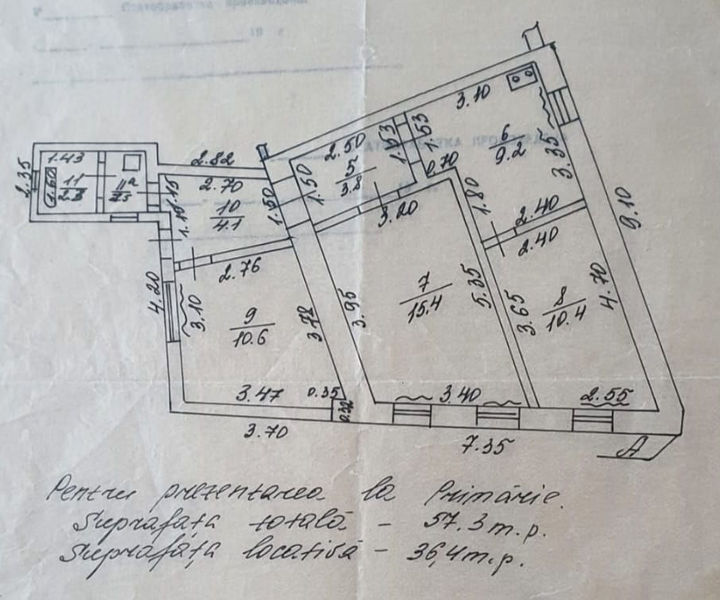 19 г.
3.10
1.53
1.53
2.50
6
9.2
3.35
5
3.8
0.70
1.43
2.35
1.60
11
11a
1.15
1.10
2.82
2.70
10
4.1
1.50
1.50
3.20
1.80
2.40
2.40
9.10
2.76
4.20
3.10
9
10.6
3.72
3.95
7
15.4
5.35
3.65
8
10.4
4.70
3.47
0.35
0.32
3.40
2.55
3.70
7.35
A
Pentru prezentarea la Primărie.
Suprafața totală - 57.3 m.p.
Suprafața locativă - 36,4 m.p.